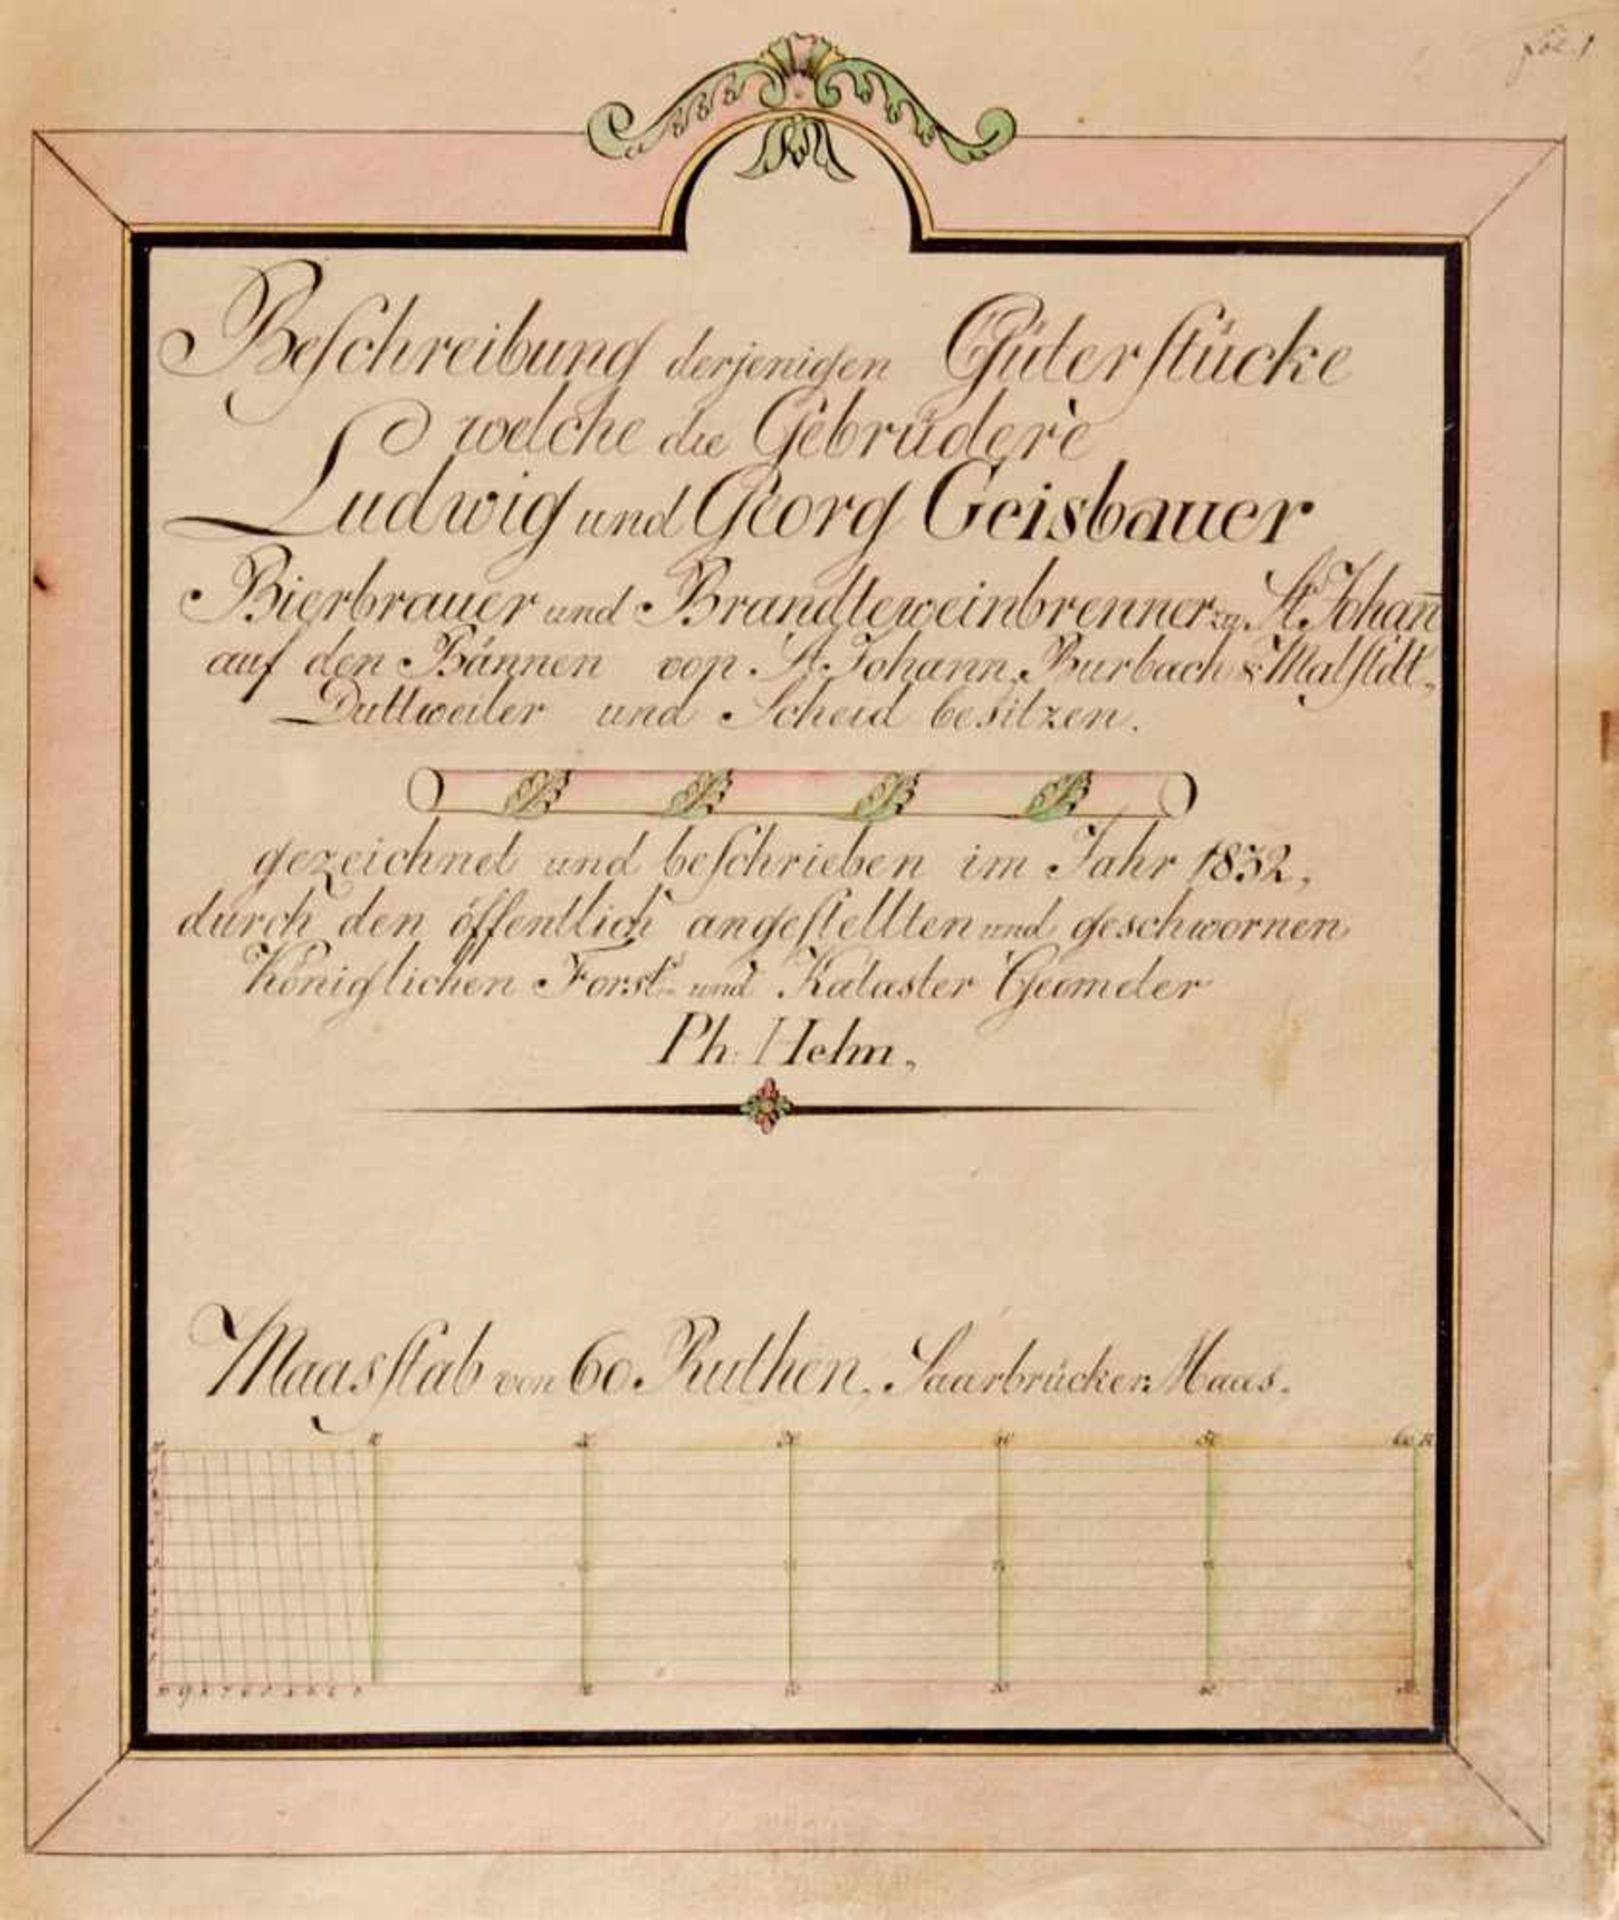 fol. 1
Beschreibung derjenigen Güterstücke
welche die Gebrüdere
Ludwig und Georg Geisbauer
Bierbrauer und Brandteweinbrenner zu St. Johañ
auf den Bännen von St. Johann, Burbach & Malstatt,
Duttweiler und Scheid besitzen.
gezeichnet und beschrieben im Jahr 1832,
durch den öffentlich angestellten und geschwornen
Königlichen Forst- und Kataster Geometer
Ph. Helm.
Maasstab von 60 Ruthen, Saarbrücker Maas.